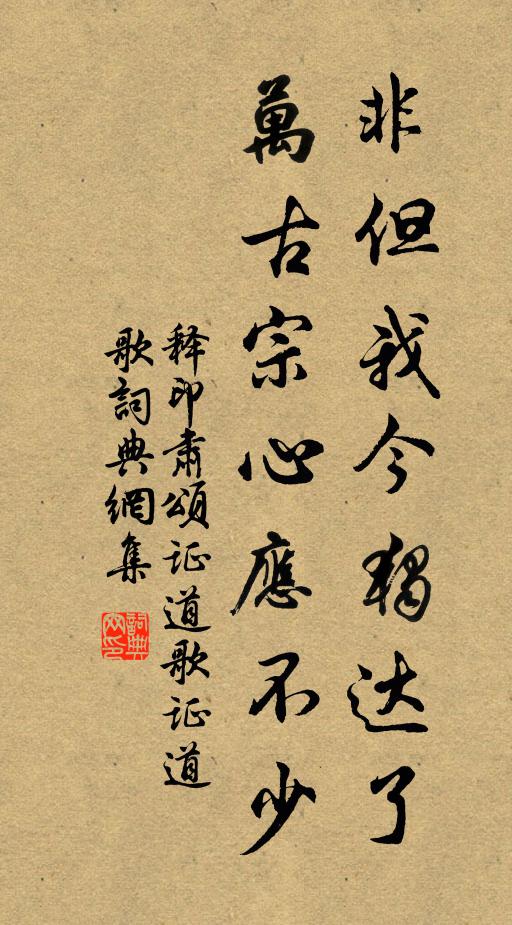 非但我今獨达了
萬古宗心應不少
释印肃頌证道歌证道
歌詞典網集
詞典网印